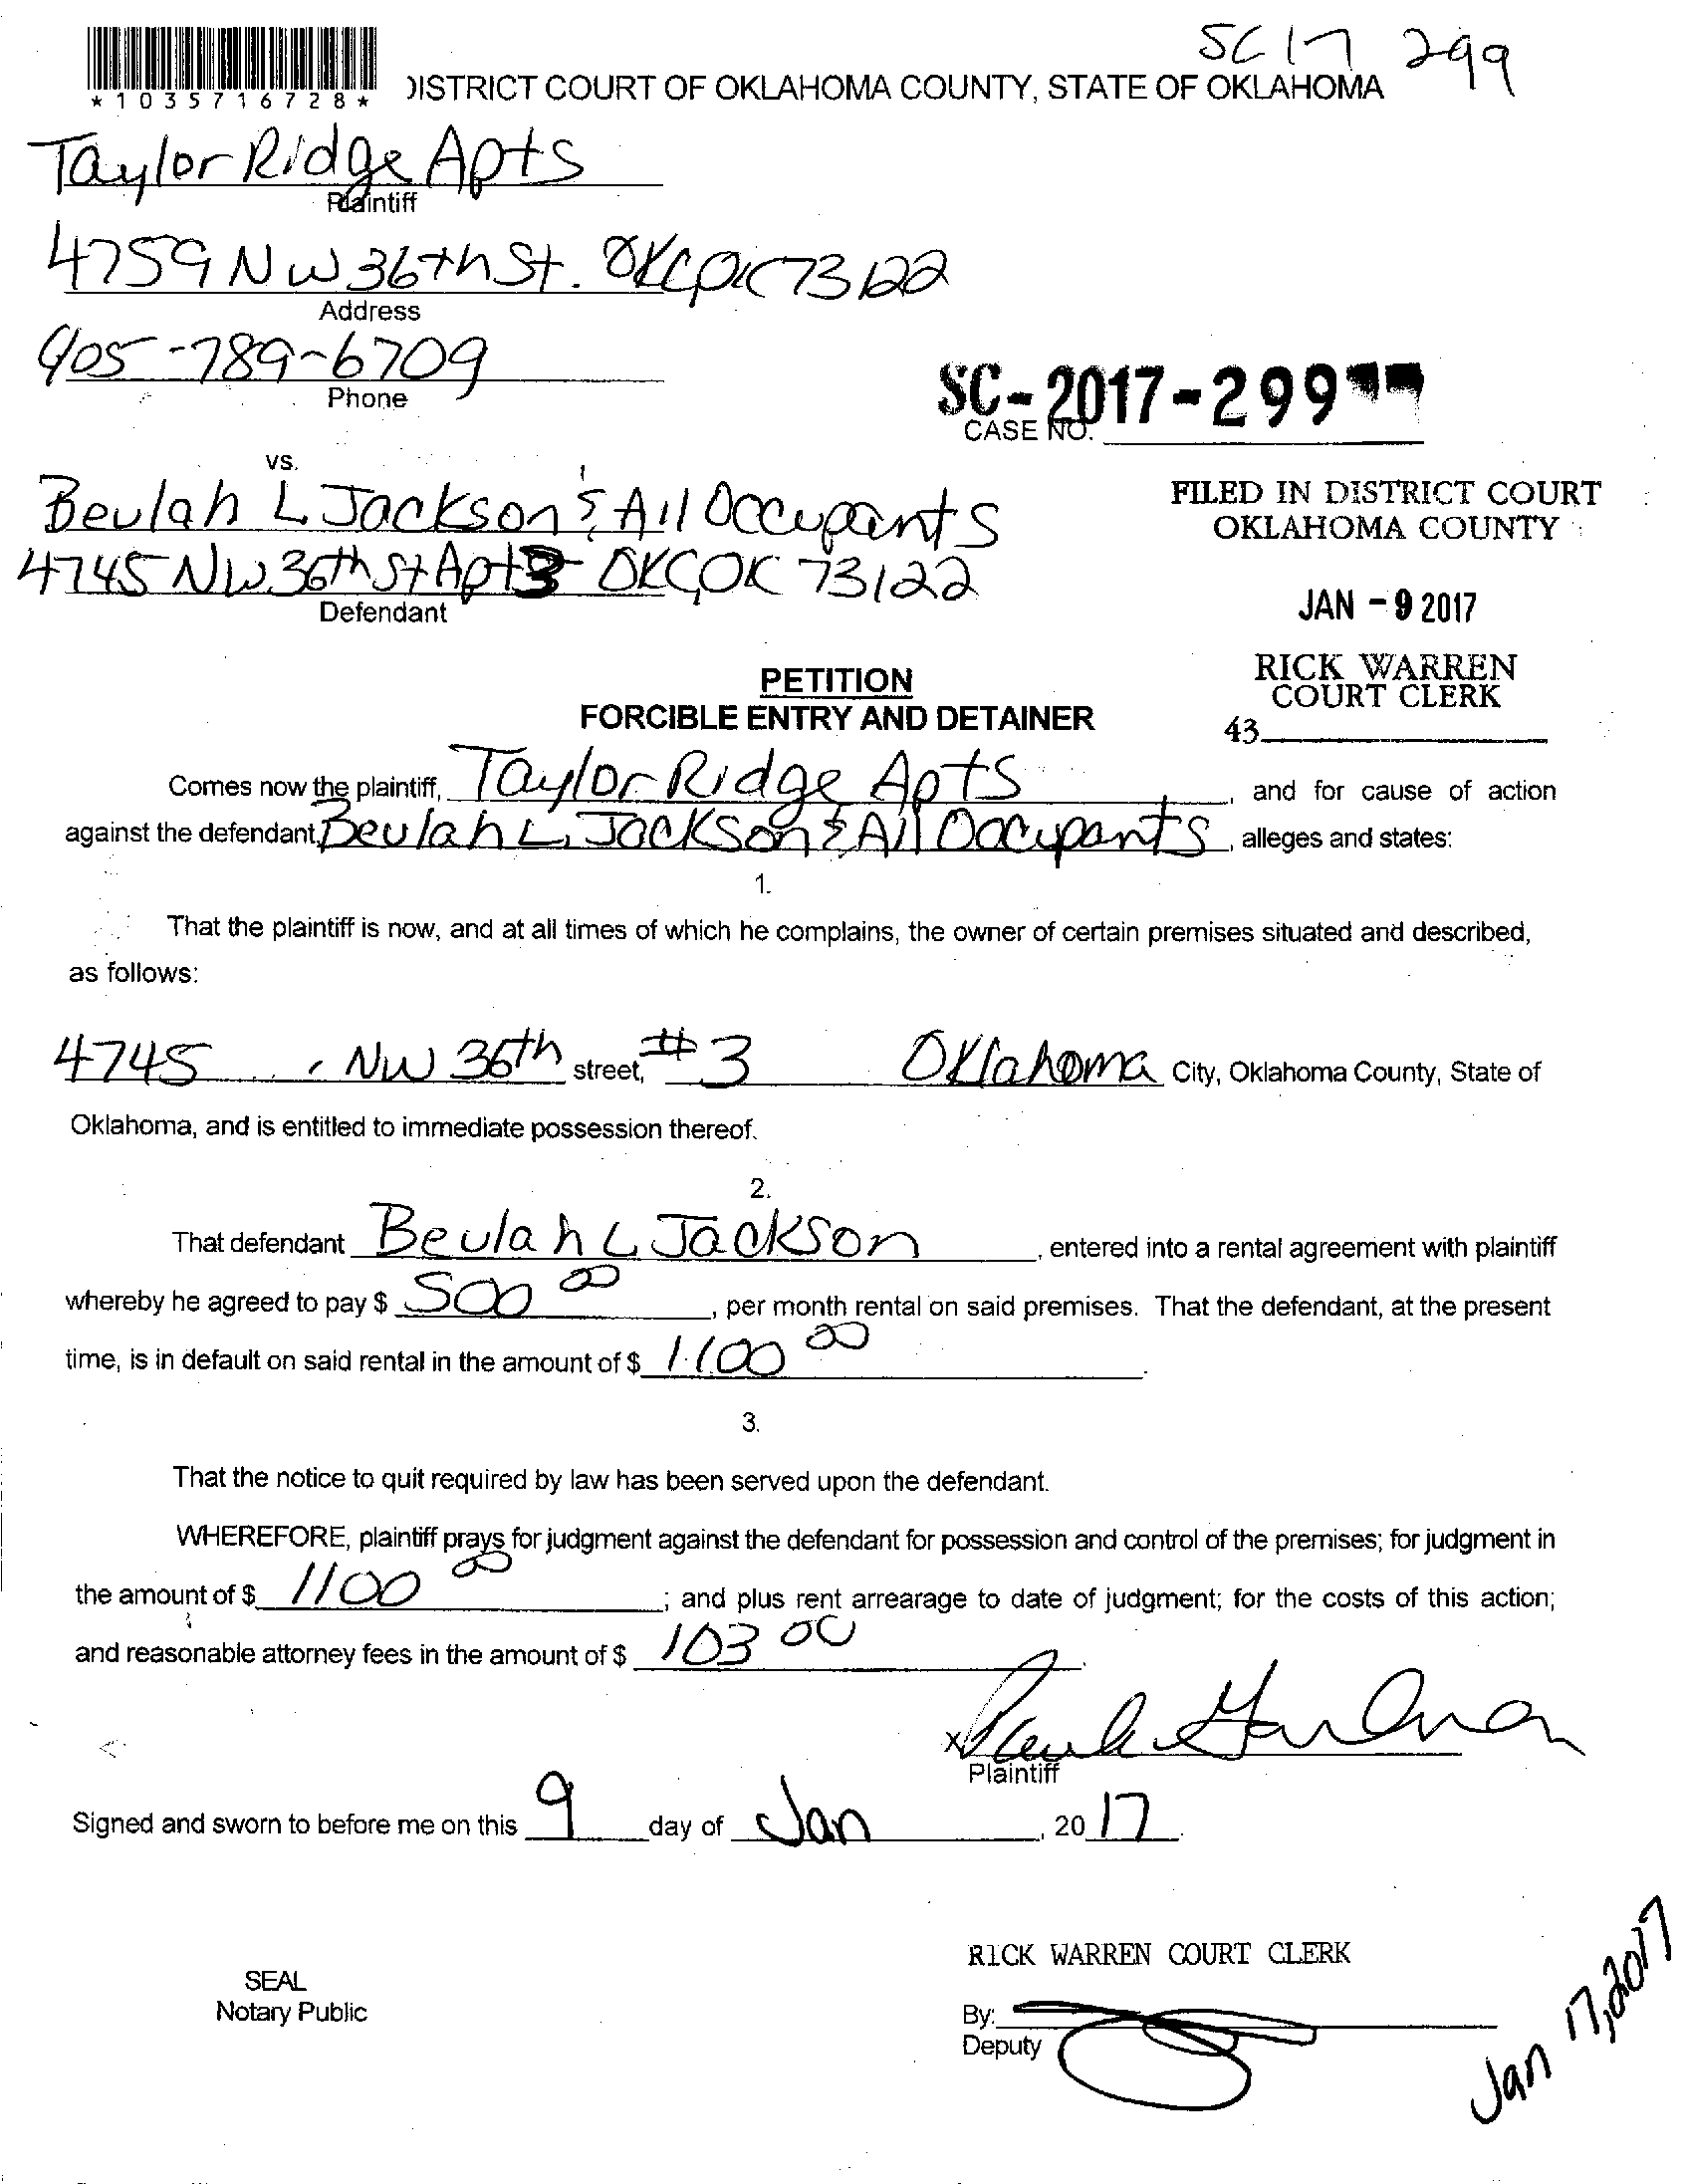 SC 17 299
*1035716728*
DISTRICT COURT OF OKLAHOMA COUNTY, STATE OF OKLAHOMA
Taylor Ridge Apts
Plaintiff
4759 NW 36th St. OKC OK 73122
Address
405-789-6709
Phone
SC-2017-299
CASE NO.
vs.
Beulah L Jackson & All Occupants
4745 NW 36th St Apt 3 OKC, OK 73122
Defendant
FILED IN DISTRICT COURT
OKLAHOMA COUNTY
JAN - 9 2017
RICK WARREN
COURT CLERK
43
PETITION
FORCIBLE ENTRY AND DETAINER
Comes now the plaintiff, Taylor Ridge Apts, and for cause of action
against the defendant, Beulah L. Jackson & All Occupants, alleges and states:
1.
That the plaintiff is now, and at all times of which he complains, the owner of certain premises situated and described,
as follows:
4745 NW 36th street, #3 Oklahoma City, Oklahoma County, State of
Oklahoma, and is entitled to immediate possession thereof.
2.
That defendant Beulah L Jackson, entered into a rental agreement with plaintiff
whereby he agreed to pay $ 500 00, per month rental on said premises. That the defendant, at the present
time, is in default on said rental in the amount of $ 1100 00.
3.
That the notice to quit required by law has been served upon the defendant.
WHEREFORE, plaintiff prays for judgment against the defendant for possession and control of the premises; for judgment in
the amount of $ 1100 00; and plus rent arrearage to date of judgment; for the costs of this action;
and reasonable attorney fees in the amount of $ 103 00.
x
Plaintiff
Signed and sworn to before me on this 9 day of Jan, 20 17.
RICK WARREN COURT CLERK
SEAL
Notary Public
By:
Deputy
Jan 17, 2017